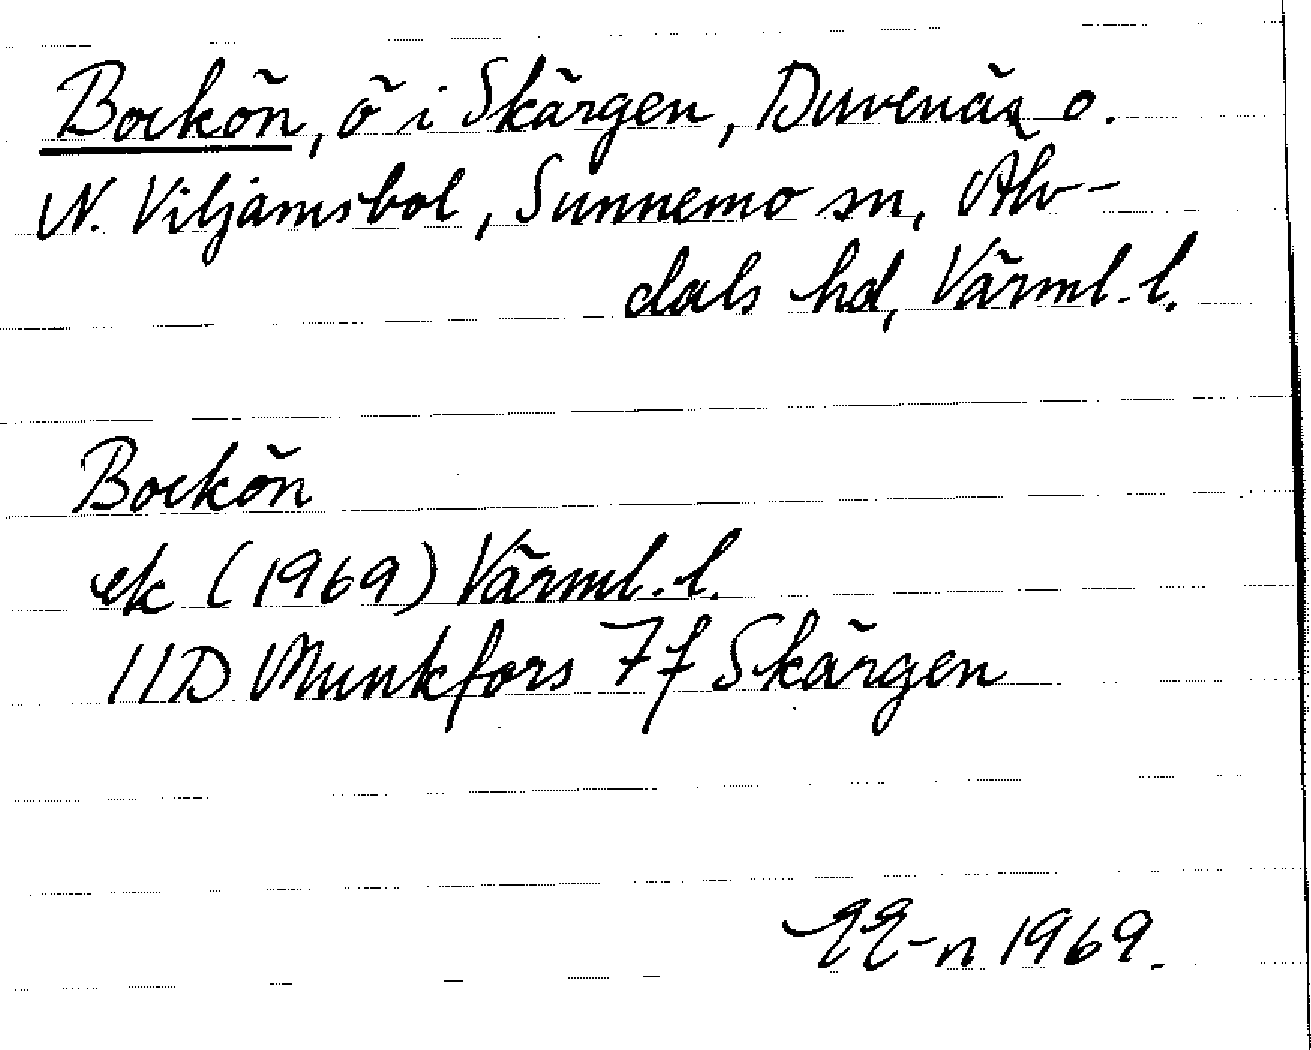 Bockön, ö i Skärgen, Duvenäs o.
N. Viljamsbol, Sunnemo sn, Älv-
dals hd, Värml. l.
Bockön
ek (1969) Värml. l.
11D Munkfors 7f Skärgen
EE-n 1969.